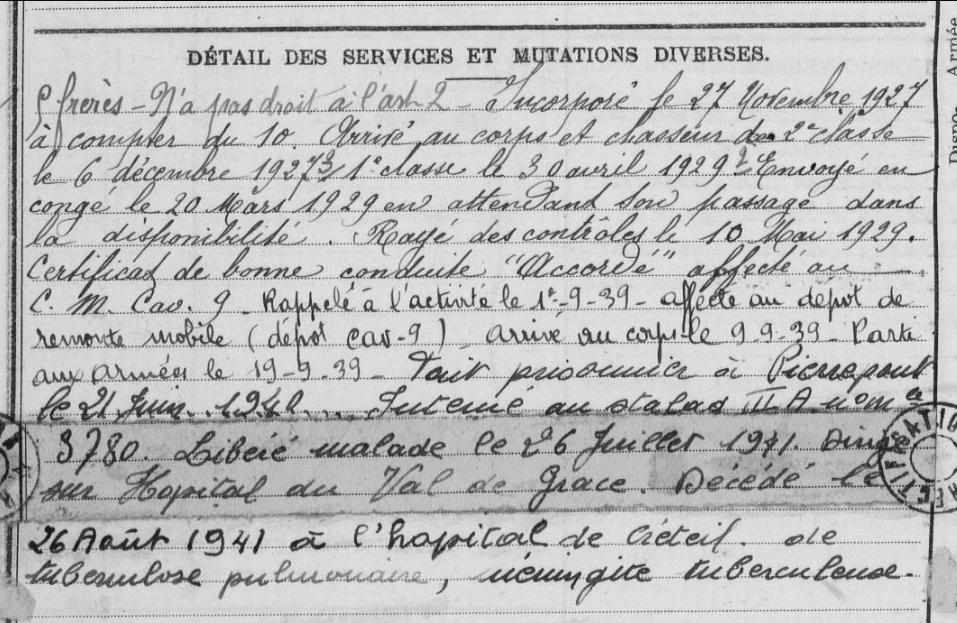 DÉTAIL DES SERVICES ET MUTATIONS DIVERSES.
frères - N'a pas droit à l'art 2 - Incorporé le 27 Novembre 1927
à compter du 10. Arrivé au corps et chasseur de 2e classe
le 6 décembre 1927 1e classe le 30 avril 1929 Envoyé en
congé le 20 Mars 1929 en attendant son passage dans
la disponibilité. Rayé des contrôles le 10 Mai 1929.
Certificat de bonne conduite "Accordé" affecté au
C. M. Cav. 9 - Rappelé à l'activité le 1e-9-39 - affecté au dépot de
remonte mobile (dépot cav-9) - arrivé au corps le 9-9-39 - Parti
aux armées le 19-9-39 - Fait prisonnier à Pierrepont
le 21 Juin 1940 Interné au stalag III A
3780. Libéré malade le 26 Juillet 1941. Dirigé
sur Hopital du Val de Grace. Décédé le
26 Août 1941 à l'hopital de Créteil. de
tuberculose pulmonaire, méningite tuberculeuse.
Dispo-
Armée